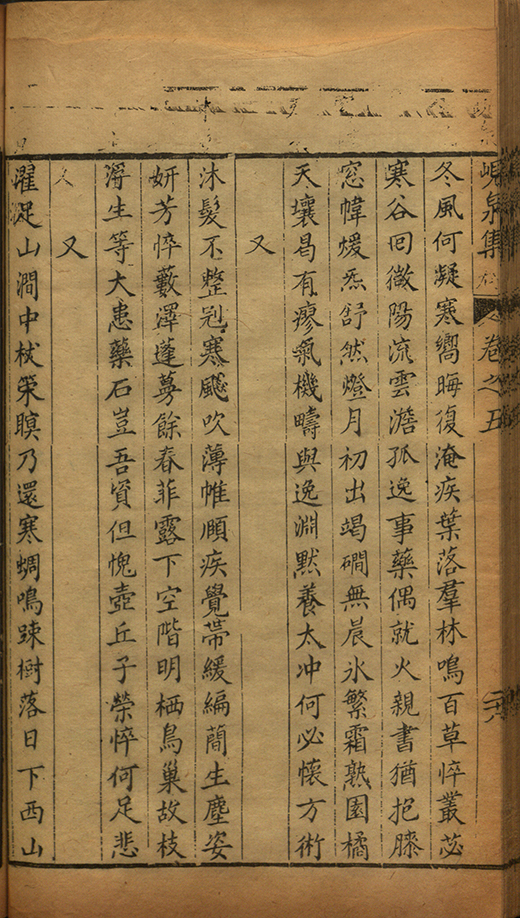 峴泉集 卷之五
冬風何凝寒嚮晦復淹疾葉落羣林鳴百草悴叢苾
寒谷回微陽流雲澹孤逸事藥偶就火親書猶抱膝
窓幃煖炁舒然燈月初出竭磵無晨氷繁霜熟園橘
天壤曷有瘳氣機疇與逸淵默養太冲何必懷方術
又
沐髮不整冠寒颷吹薄帷顧疾覺帶緩編蕳生塵姿
妍芳悴藪澤蓬蔓餘春菲露下空階明栖鳥巢故枝
浮生等大患藥石豈吾資但愧壺丘子榮悴何足悲
又
濯足山澗中杖策瞑乃還寒蜩鳴踈樹落日下西山